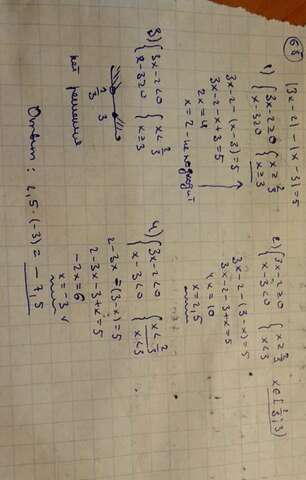 68
|3x-2| - |x-3| = 5
1) { 3x-2≥0 { x≥2/3
x-3≥0 { x≥3
3x-2-(x-3)=5
3x-2-x+3=5
2x=4
x=2 - не подходит
2) { 3x-2≥0 { x≥2/3
x-3<0 { x<3
x∈[2/3;3)
3x-2-(3-x)=5
3x-2-3+x=5
4x=10
x=2,5
3) { 3x-2<0 { x<2/3
x-3≥0 { x≥3
2/3 3
нет решений
4) { 3x-2<0 { x<2/3
x-3<0 { x<3
2-3x-(3-x)=5
2-3x-3+x=5
-2x=6
x=-3
Ответ: 2,5·(-3) = -7,5